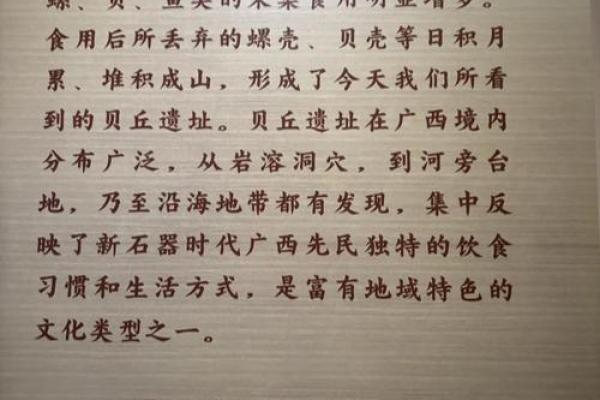 螺、贝、鱼类的采集食用明显增多。
食用后所丢弃的螺壳、贝壳等日积月
累、堆积成山，形成了今天我们所看
到的贝丘遗址。贝丘遗址在广西境内
分布广泛，从岩溶洞穴，到河旁台
地，乃至沿海地带都有发现，集中反
映了新石器时代广西先民独特的饮食
习惯和生活方式，是富有地域特色的
文化类型之一。